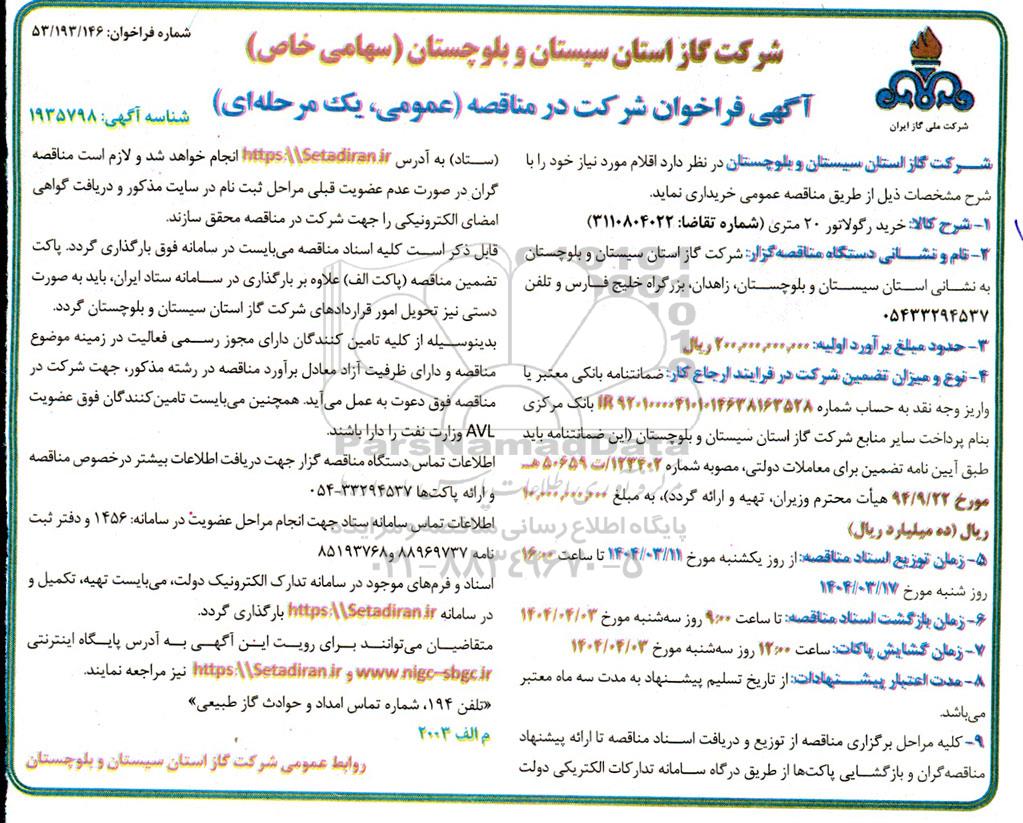 شماره فراخوان: ۵۳/۱۹۳/۱۴۶
شرکت گاز استان سیستان و بلوچستان (سهامی خاص)
آگهی فراخوان شرکت در مناقصه (عمومی، یک مرحله‌ای)
شناسه آگهی: ۱۹۳۵۷۹۸
شرکت ملی گاز ایران
شـرکت گاز استان سیستان و بلوچستان در نظر دارد اقلام مورد نیاز خود را با
شرح مشخصات ذیل از طریق مناقصه عمومی خریداری نماید.
۱- شرح کالا: خرید رگولاتور ۲۰ متری (شماره تقاضا: ۳۱۱۰۸۰۴۰۲۲)
۲- نام و نشـانی دستگاه مناقصه‌گزار: شرکت گاز استان سیستان و بلوچستان
به نشـانی اسـتان سیسـتان و بلوچستان، زاهدان، بزرگراه خلیج فـارس و تلفن
۰۵۴۳۳۲۹۴۵۳۷
۳- حدود مبلغ برآورد اولیه: ۲۰۰,۰۰۰,۰۰۰,۰۰۰ ریال
۴- نوع و میزان تضمین شرکت در فرایند ارجاع کار: ضمانتنامه بانکی معتبر یا
واریز وجه نقد به حساب شماره IR ۹۲۰۱۰۰۰۰۴۱۰۱۰۱۴۶۳۸۱۶۳۵۲۸ بانک مرکزی
بنام پرداخت سایر منابع شرکت گاز استان سیستان و بلوچستان (این ضمانتنامه باید
طبق آیین نامه تضمین برای معاملات دولتی، مصوبه شماره ۱۲۳۴۰۲/ت ۵۰۶۵۹ هـ
مورخ ۹۴/۹/۲۲ هیأت محترم وزیران، تهیه و ارائه گردد)، به مبلغ ۱۰,۰۰۰,۰۰۰,۰۰۰
ریال (ده میلیارد ریال)
۵- زمان توزیع اسناد مناقصه: از روز یکشنبه مورخ ۱۴۰۴/۰۳/۱۱ تا ساعت ۱۶:۰۰
روز شنبه مورخ ۱۴۰۴/۰۳/۱۷
۶- زمان بازگشت اسناد مناقصه: تا ساعت ۹:۰۰ روز سه‌شنبه مورخ ۱۴۰۴/۰۴/۰۳
۷- زمان گشایش پاکات: ساعت ۱۲:۰۰ روز سه‌شنبه مورخ ۱۴۰۴/۰۴/۰۳
۸- مدت اعتبار پیشـنهادات: از تاریخ تسلیم پیشـنهاد به مدت سه ماه معتبر
می‌باشد.
۹- کلیه مراحل برگزاری مناقصه از توزیع و دریافت اسـناد مناقصه تا ارائه پیشنهاد
مناقصه‌گران و بازگشـایی پاکت‌ها از طریق درگاه سـامانه تدارکات الکتریکی دولت
(سـتاد) به آدرس https:\\Setadiran.ir انجام خواهد شد و لازم است مناقصه
گران در صورت عدم عضویت قبلی مراحل ثبت نام در سایت مذکور و دریافت گواهی
امضای الکترونیکی را جهت شرکت در مناقصه محقق سازند.
قابل ذکر اسـت کلیه اسناد مناقصه می‌بایست در سامانه فوق بارگذاری گردد. پاکت
تضمین مناقصه (پاکت الف) علاوه بر بارگذاری در سـامانه ستاد ایران، باید به صورت
دستی نیز تحویل امور قراردادهای شرکت گاز استان سیستان و بلوچستان گردد.
بدینوسـیله از کلیه تامین کنندگان دارای مجوز رسـمی فعالیت در زمینه موضوع
مناقصه و دارای ظرفیت آزاد معادل برآورد مناقصه در رشته مذکور، جهت شرکت در
مناقصه فوق دعوت به عمل می‌آید. همچنین می‌بایست تامین‌کنندگان فوق عضویت
AVL وزارت نفت را دارا باشند.
اطلاعات تماس دستگاه مناقصه گزار جهت دریافت اطلاعات بیشتر درخصوص مناقصه
و ارائه پاکت‌ها ۳۳۲۹۴۵۳۷-۰۵۴
اطلاعات تماس سامانه ستاد جهت انجام مراحل عضویت در سامانه: ۱۴۵۶ و دفتر ثبت
نامه ۸۸۹۶۹۷۳۷ و ۸۵۱۹۳۷۶۸
اسناد و فرم‌های موجود در سامانه تدارک الکترونیک دولت، می‌بایست تهیه، تکمیل و
در سامانه https:\\Setadiran.ir بارگذاری گردد.
متقاضیـان می‌تواننـد بـرای رویـت ایـن آگهـی بـه آدرس پایـگاه اینترنتی
www.nigc-sbgc.ir و https:\\Setadiran.ir نیز مراجعه نمایند.
«تلفن ۱۹۴، شماره تماس امداد و حوادث گاز طبیعی»
م الف ۲۰۰۳
روابط عمومی شرکت گاز استان سیستان و بلوچستان
ParsNamadData
پایگاه اطلاع رسانی مناقصه و مزایده
۰۲۱-۸۸۳۴۹۶۷۰-۵